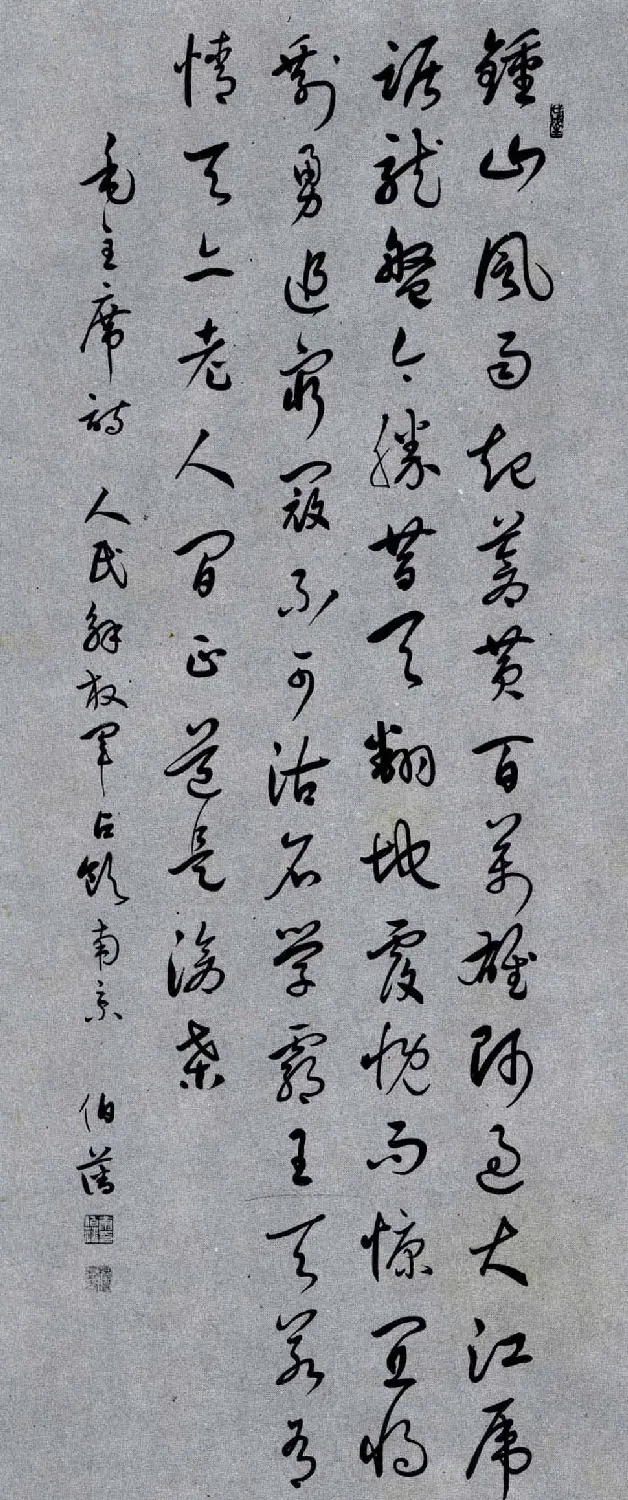 鍾山風雨起蒼黃百萬雄師過大江虎
踞龍盤今勝昔天翻地覆慨而慷宜將
剩勇追窮寇不可沽名學霸王天若有
情天亦老人間正道是滄桑
毛主席詩 人民解放軍占領南京 伯